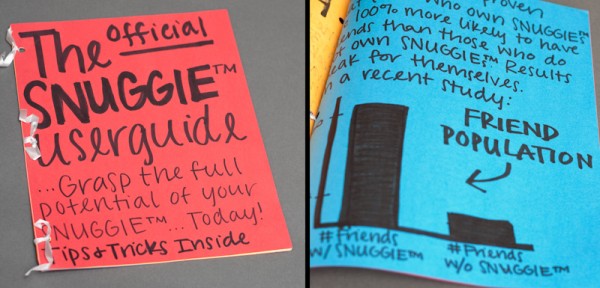 The Official
SNUGGIE™
userguide
...Grasp the full
potential of your
SNUGGIE™...Today!
Tips & Tricks Inside
proven
who own SNUGGIE™
100% more likely to have
than those who do
own SNUGGIE™. Results
for themselves.
a recent study:
FRIEND
POPULATION
#Friends
W/ SNUGGIE™
#Friends
W/O SNUGGIE™